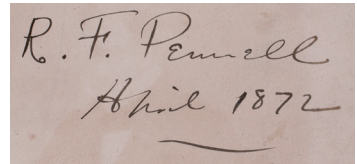 R. F. Pennell
April 1872